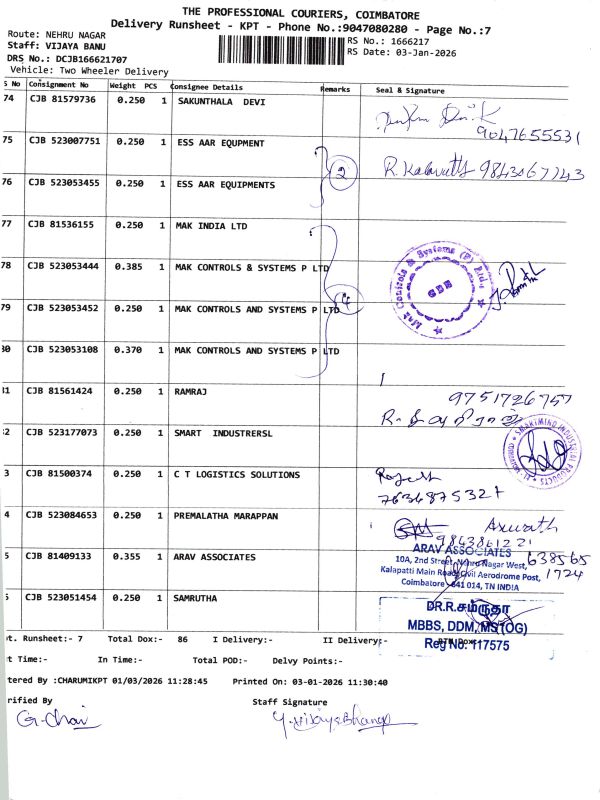 THE PROFESSIONAL COURIERS, COIMBATORE
Delivery Runsheet - KPT - Phone No.:9047080280 - Page No.:7
Route: NEHRU NAGAR
Staff: VIJAYA BANU
RS No.: 1666217
DRS No.: DCJB166621707
RS Date: 03-Jan-2026
Vehicle: Two Wheeler Delivery
S No Consignment No Weight PCS Consignee Details Remarks Seal & Signature
74 CJB 81579736 0.250 1 SAKUNTHALA DEVI
9047655531
75 CJB 523007751 0.250 1 ESS AAR EQUPMENT
2 R. Kalavathi 9843067743
76 CJB 523053455 0.250 1 ESS AAR EQUIPMENTS
77 CJB 81536155 0.250 1 MAK INDIA LTD
78 CJB 523053444 0.385 1 MAK CONTROLS & SYSTEMS P LTD
Mak Controls & Systems (P) Ltd.,
CBE
79 CJB 523053452 0.250 1 MAK CONTROLS AND SYSTEMS P LTD
4
80 CJB 523053108 0.370 1 MAK CONTROLS AND SYSTEMS P LTD
81 CJB 81561424 0.250 1 RAMRAJ
9751726757
2 CJB 523177073 0.250 1 SMART INDUSTRERSL
3 CJB 81500374 0.250 1 C T LOGISTICS SOLUTIONS
Rajesh
4 CJB 523084653 0.250 1 PREMALATHA MARAPPAN
Aswath
9843861221
5 CJB 81409133 0.355 1 ARAV ASSOCIATES
ARAV ASSOCIATES
10A, 2nd Street, Nehru Nagar West,
Kalapatti Main Road, Civil Aerodrome Post,
Coimbatore - 641 014, TN INDIA
638565
1724
6 CJB 523051454 0.250 1 SAMRUTHA
DR.R.சம்ருதா
MBBS, DDM, MS(OG)
Reg No: 117575
t. Runsheet:- 7 Total Dox:- 86 I Delivery:- II Delivery:-
t Time:- In Time:- Total POD:- Delvy Points:-
tered By :CHARUMIKPT 01/03/2026 11:28:45 Printed On: 03-01-2026 11:30:40
rified By Staff Signature